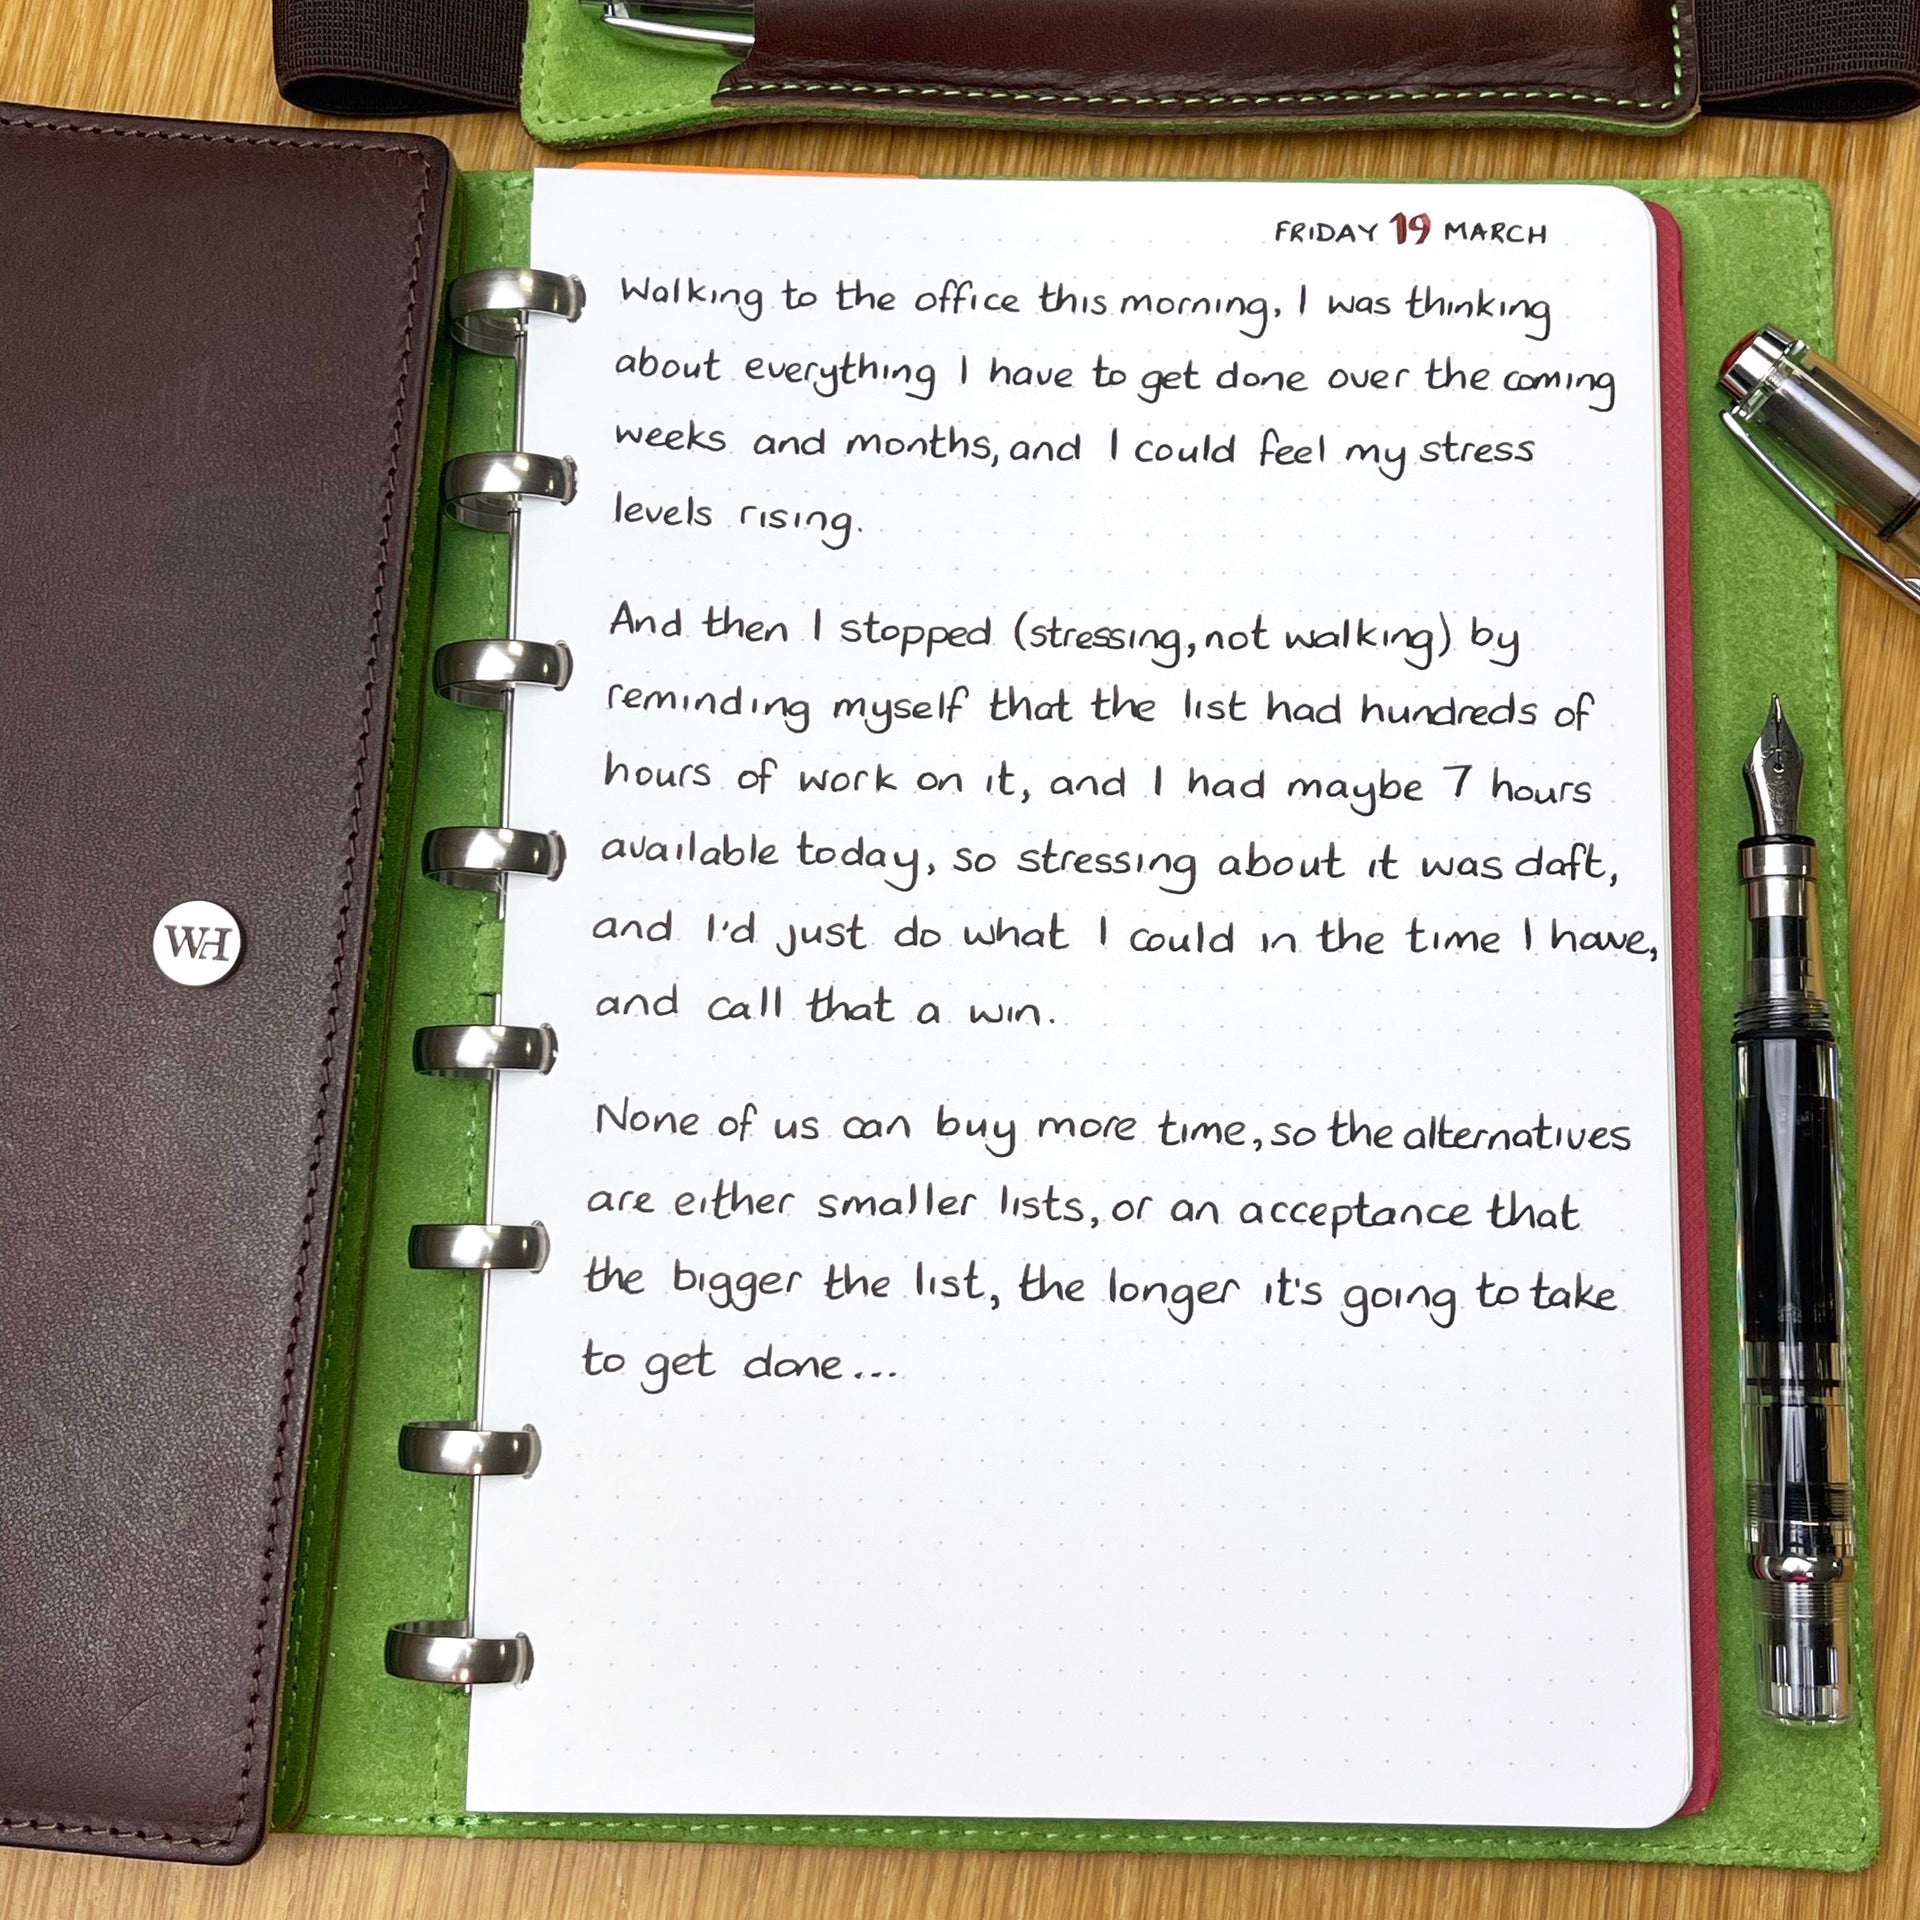 FRIDAY 19 MARCH
Walking to the office this morning, I was thinking
about everything I have to get done over the coming
weeks and months, and I could feel my stress
levels rising.
And then I stopped (stressing, not walking) by
reminding myself that the list had hundreds of
hours of work on it, and I had maybe 7 hours
available today, so stressing about it was daft,
and I'd just do what I could in the time I have,
and call that a win.
None of us can buy more time, so the alternatives
are either smaller lists, or an acceptance that
the bigger the list, the longer it's going to take
to get done...
WH